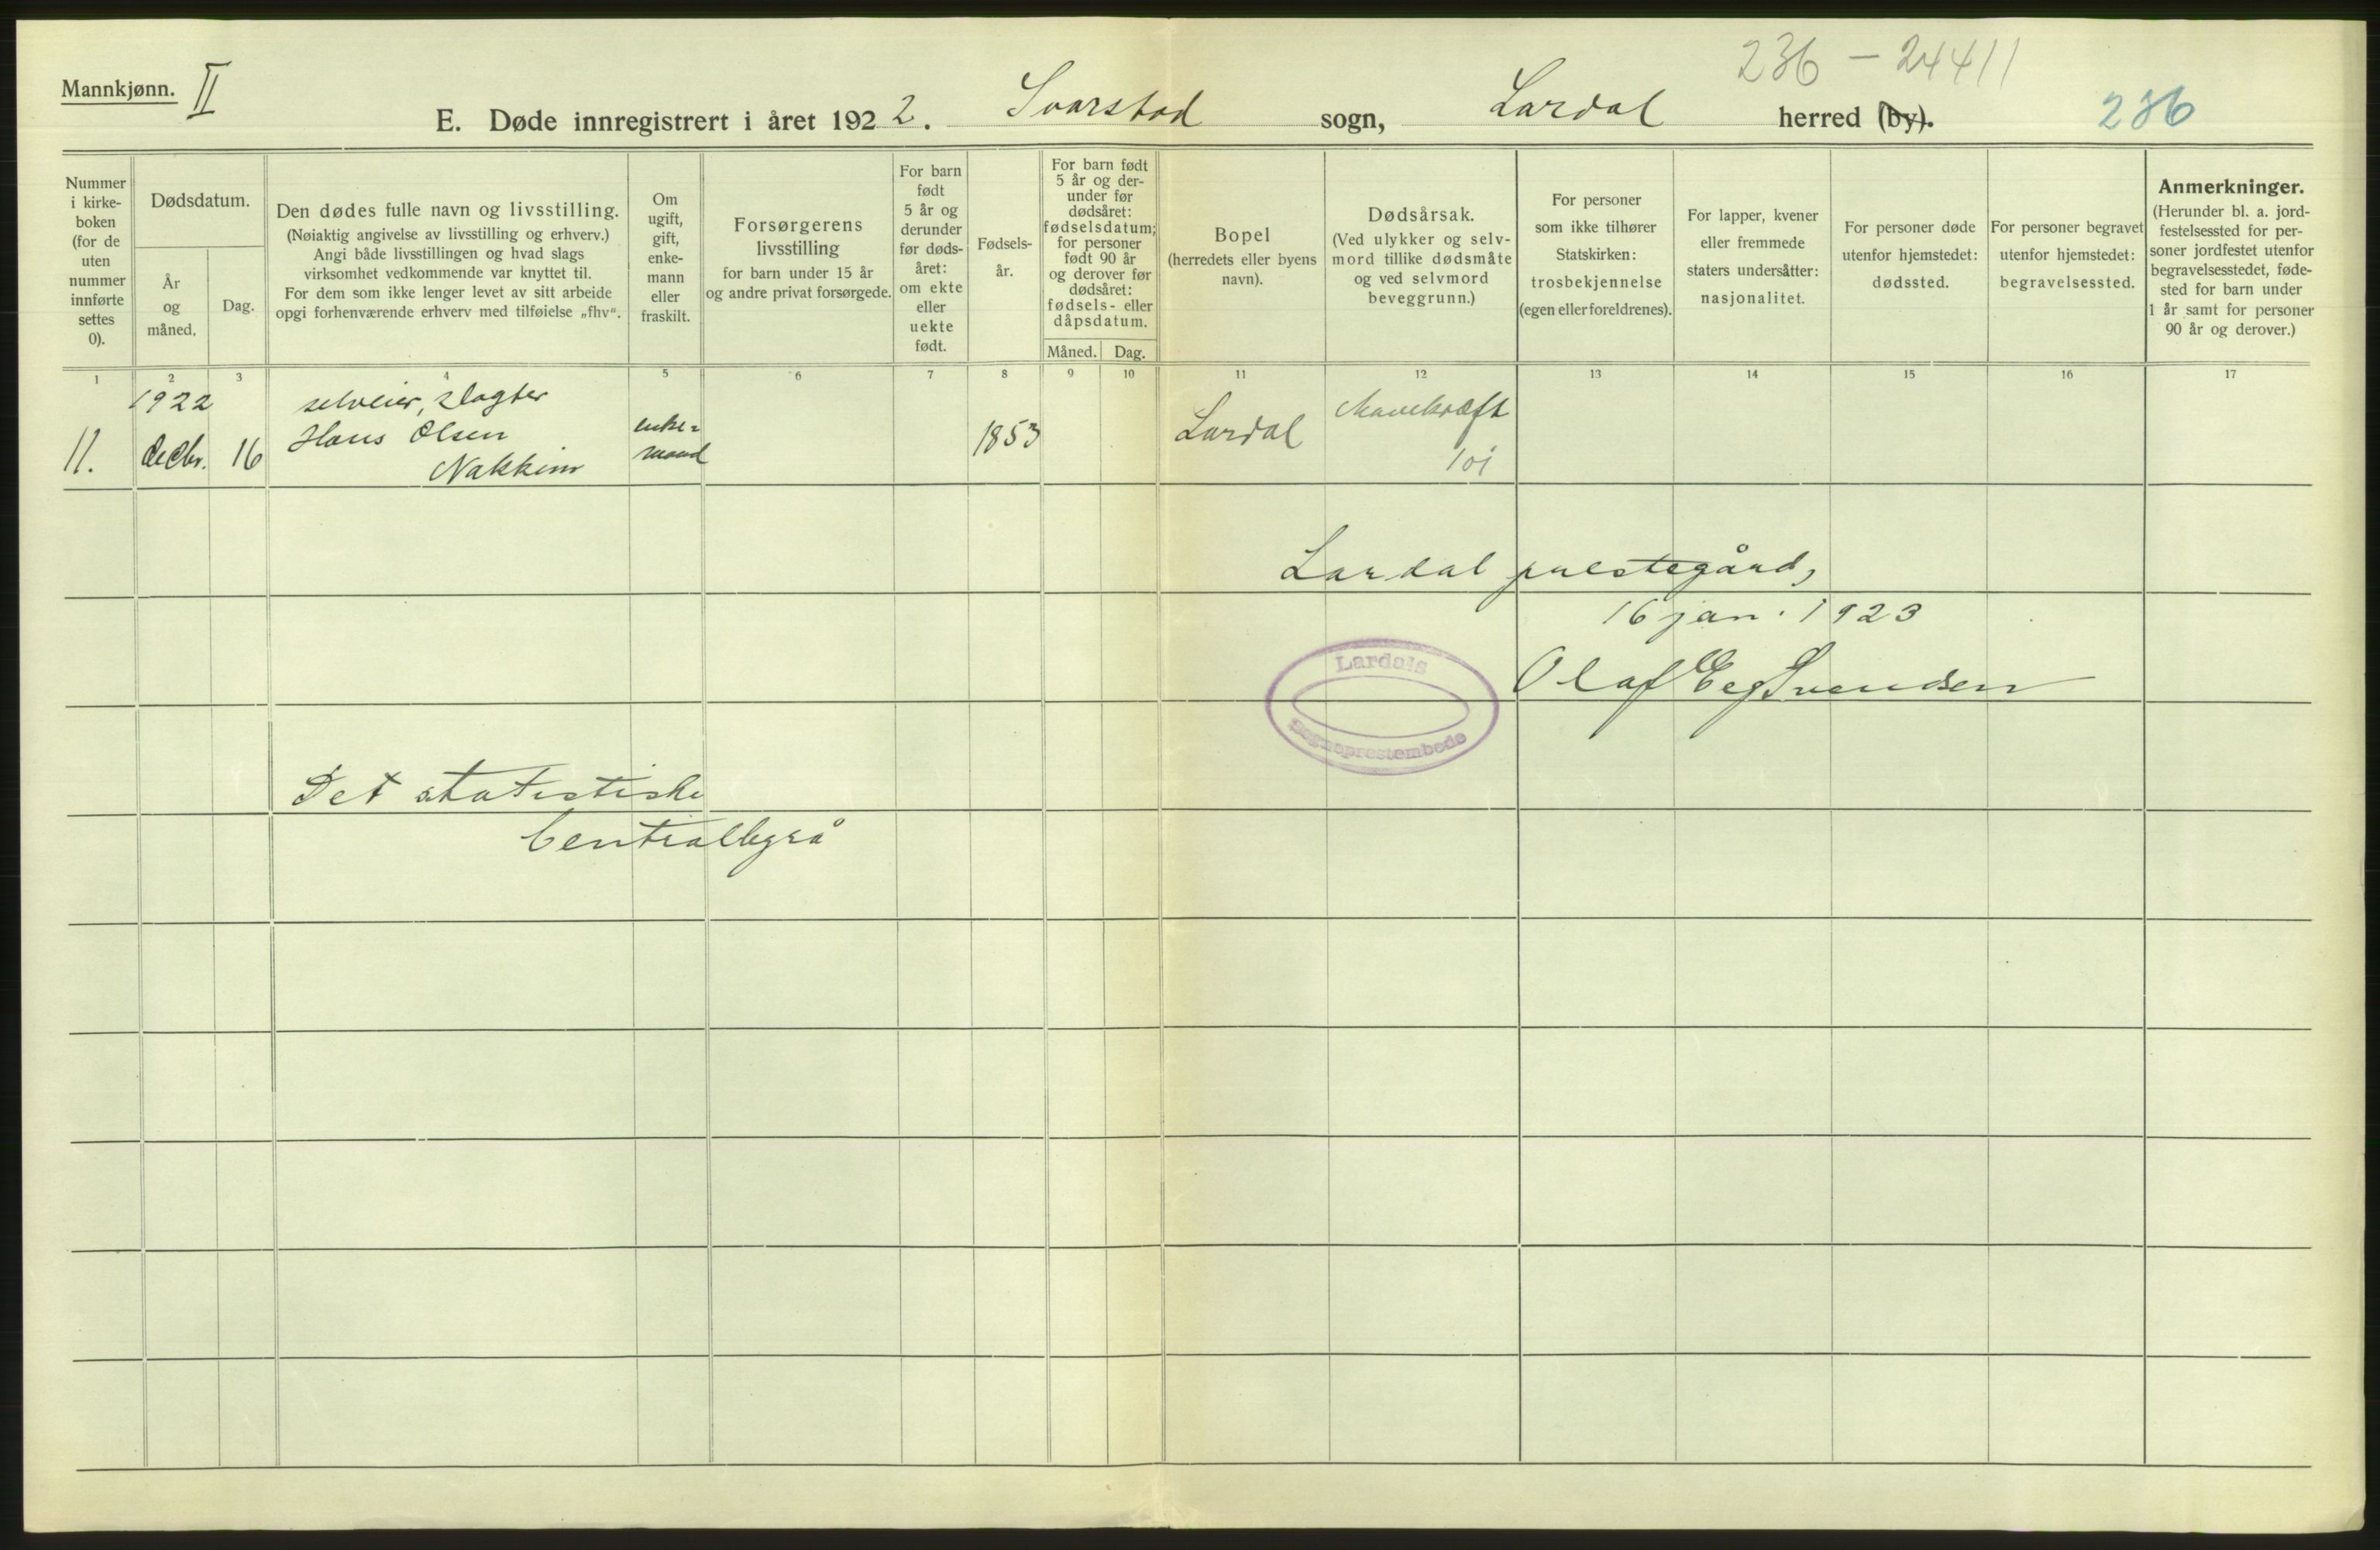 Mannkjønn. II
236 - 24411
E. Døde innregistrert i året 1922. Svarstad sogn, Lardal herred (by).
236
Nummer i kirkeboken (for de uten nummer innførte settes 0).
Dødsdatum.
År og måned.
Dag.
Den dødes fulle navn og livsstilling.
(Nøiaktig angivelse av livsstilling og erhverv.)
Angi både livsstillingen og hvad slags
virksomhet vedkommende var knyttet til.
For dem som ikke lenger levet av sitt arbeide
opgi forhenværende erhverv med tilføielse „fhv“.
Om
ugift,
gift,
enke-
mann
eller
fraskilt.
Forsørgerens
livsstilling
for barn under 15 år
og andre privat forsørgede.
For barn
født
5 år og
derunder
før døds-
året:
om ekte
eller
uekte
født.
Fødsels-
år.
For barn født
5 år og der-
under før
dødsåret:
fødselsdatum;
for personer
født 90 år
og derover før
dødsåret:
fødsels- eller
dåpsdatum.
Måned. Dag.
Bopel
(herredets eller byens
navn).
Dødsårsak.
(Ved ulykker og selv-
mord tillike dødsmåte
og ved selvmord
beveggrunn.)
For personer
som ikke tilhører
Statskirken:
trosbekjennelse
(egen eller foreldrenes).
For lapper, kvener
eller fremmede
staters undersåtter:
nasjonalitet.
For personer døde
utenfor hjemstedet:
dødssted.
For personer begravet
utenfor hjemstedet:
begravelsessted.
Anmerkninger.
(Herunder bl. a. jord-
festelsessted for per-
soner jordfestet utenfor
begravelsesstedet, føde-
sted for barn under
1 år samt for personer
90 år og derover.)
1 2 3 4 5 6 7 8 9 10 11 12 13 14 15 16 17
1922 selveier, slagter
11. decbr. 16 Hans Olsen enke= 1853 Lardal Mavekræft
Nakkim mand 101
Lardal prestegård,
16 jan. 1923
Olaf Eeg Svendsen
Lardals
sogneprestembede
Det statistiske
Centralbyrå